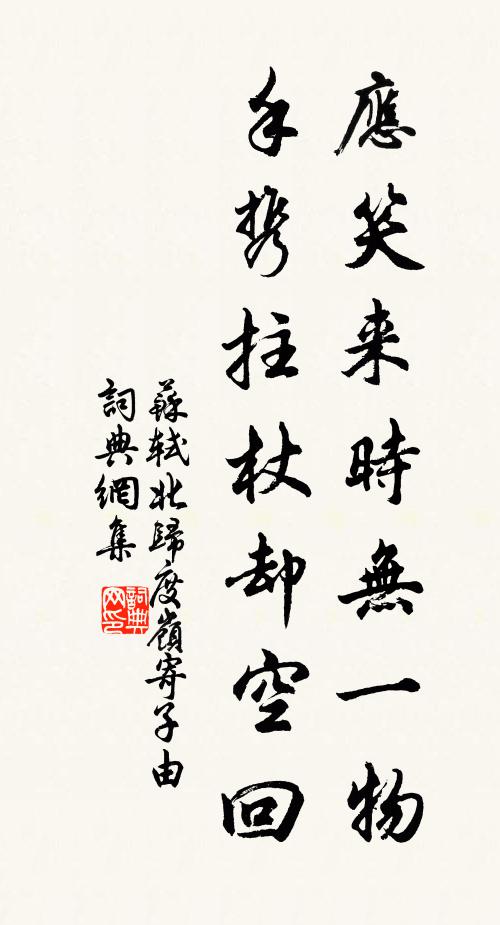 應笑来時無一物
手携拄杖却空回
蘇軾北歸度嶺寄子由
詞典網集
詞典网印